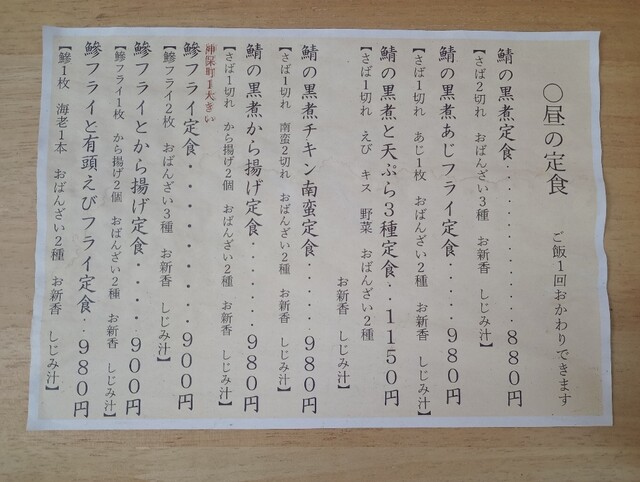 〇昼の定食　ご飯1回おかわりできます
鯖の黒煮定食・・・・・・・・・・・・・・880円
【さば2切れ　おばんざい3種　お新香　しじみ汁】
鯖の黒煮あじフライ定食・・・・・980円
【さば1切れ　あじ1枚　おばんざい2種　お新香　しじみ汁】
鯖の黒煮と天ぷら3種定食・・1150円
【さば1切れ　えび　キス　野菜　おばんざい2種
お新香　しじみ汁】
鯖の黒煮チキン南蛮定食・・・・・980円
【さば1切れ　南蛮2切れ　おばんざい2種　お新香　しじみ汁】
鯖の黒煮から揚げ定食・・・・・・980円
【さば1切れ　から揚げ2個　おばんざい2種　お新香　しじみ汁】
神保町1大きい
鯵フライ定食・・・・・・・・・900円
【鯵フライ2枚　おばんざい3種　お新香　しじみ汁】
鯵フライとから揚げ定食・・・・・900円
【鯵フライ1枚　から揚げ2個　おばんざい2種　お新香　しじみ汁】
鯵フライと有頭えびフライ定食・・980円
【鯵1枚　海老1本　おばんざい2種　お新香　しじみ汁】